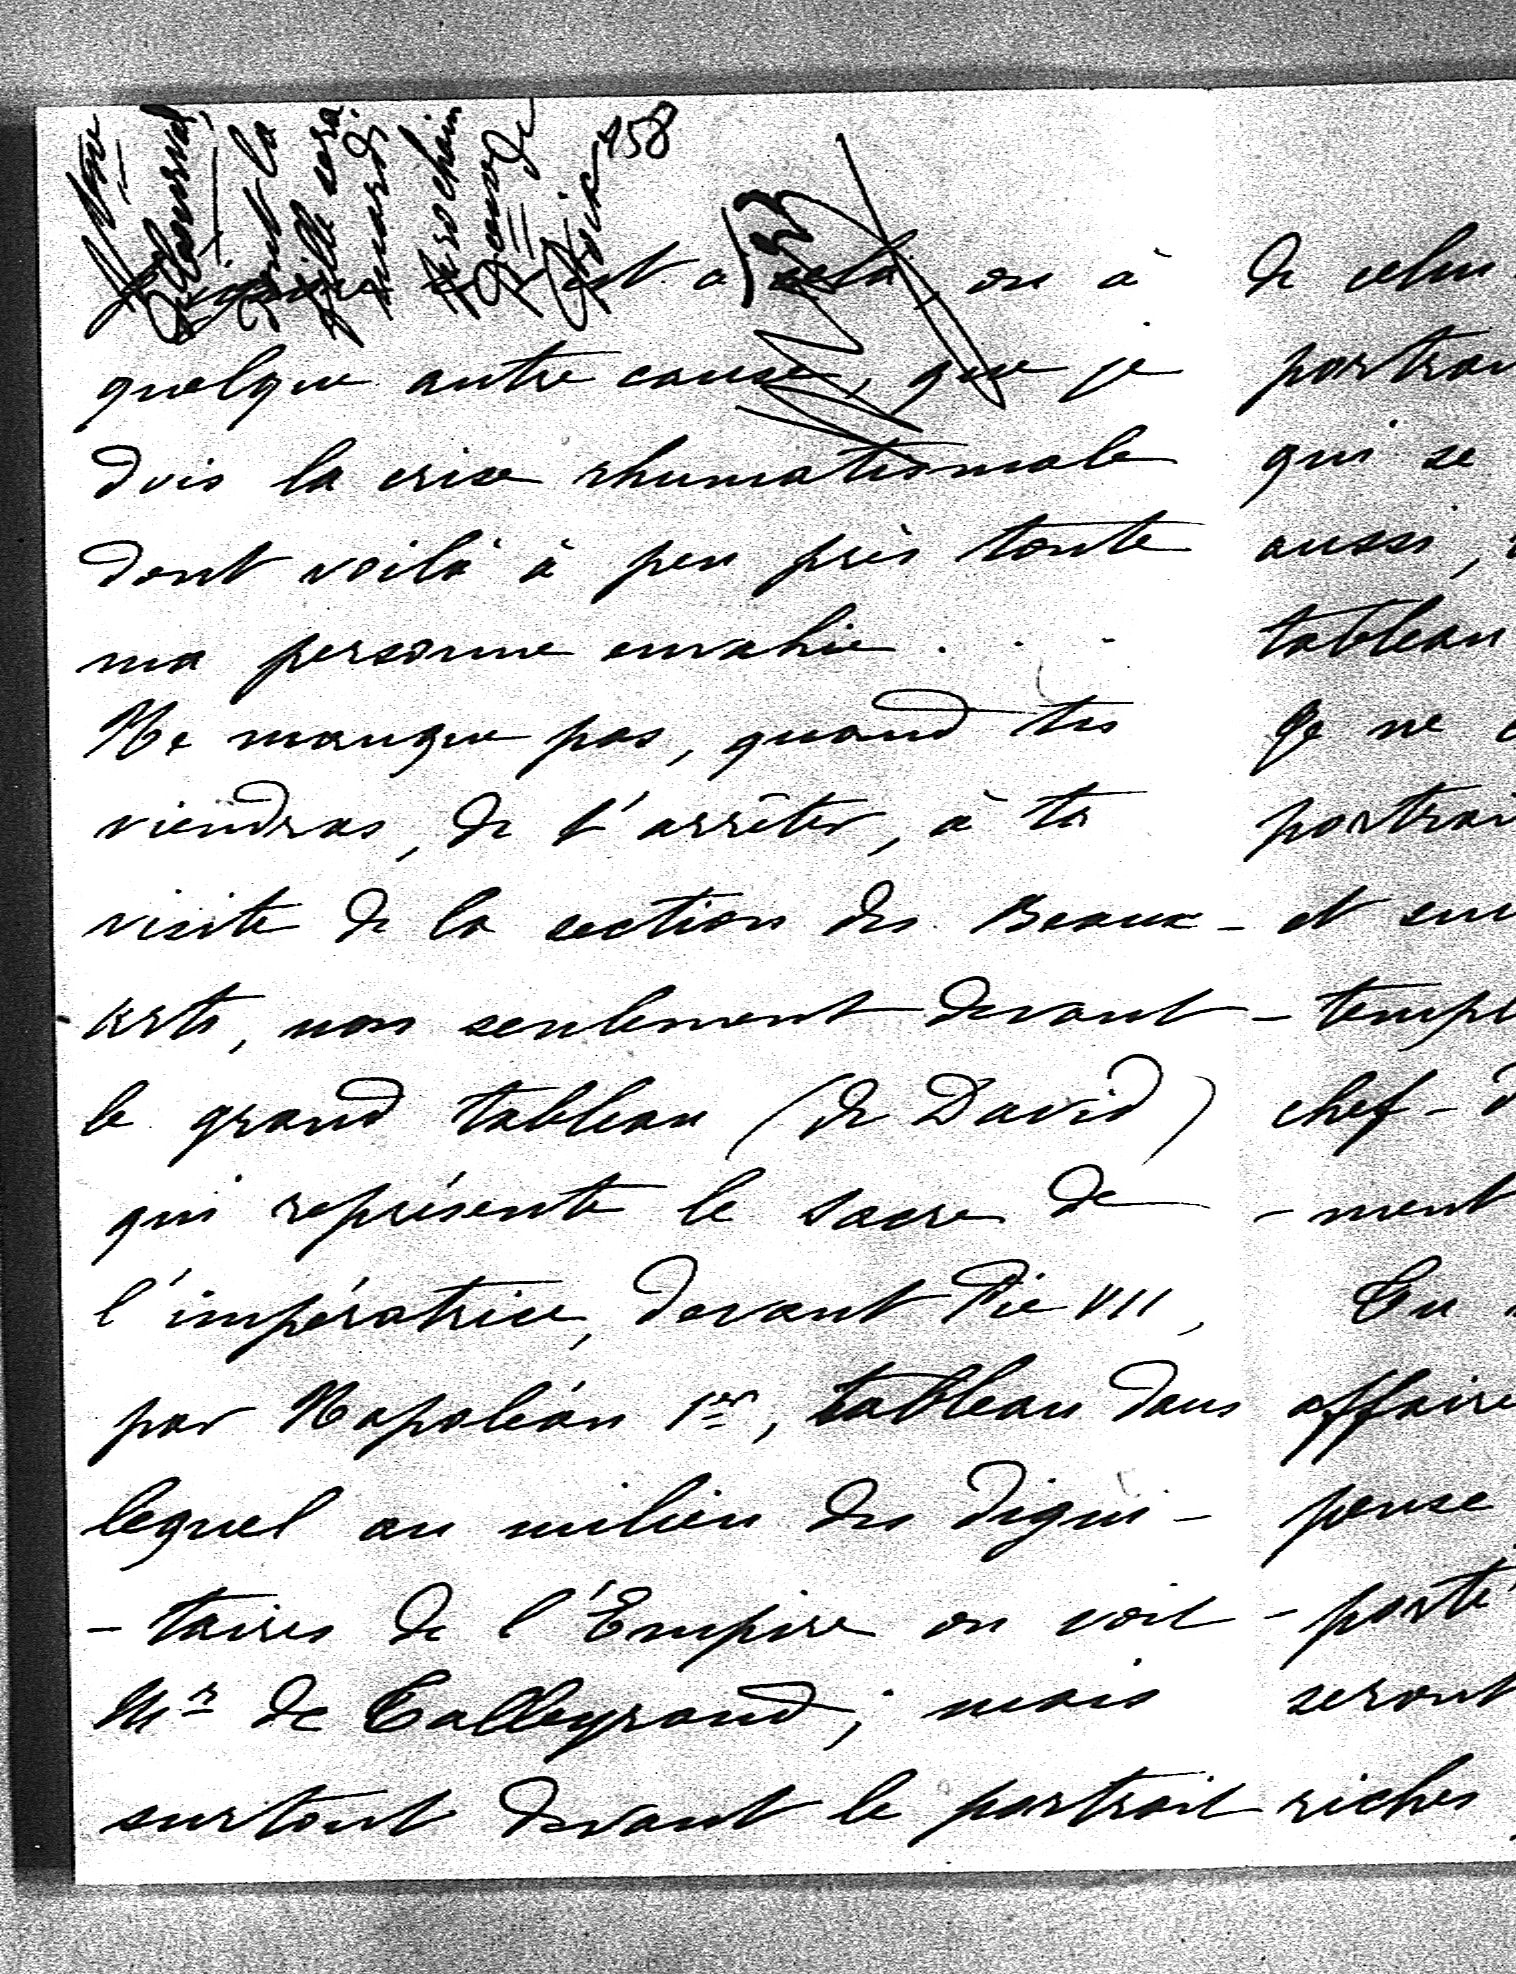 758
est à cela, ou à
quelque autre cause, que je
dois la crise rhumatismale
dont voilà à peu près toute
ma personne envahie . . .
Ne manque pas, quand tu
viendras, de t'arrêter, à ta
visite de la section des Beaux-
arts, non seulement devant
le grand tableau (de David)
qui représente le sacre de
l'impératrice, devant Pie VII,
par Napoléon 1er, tableau dans
lequel au milieu des digni-
-taires de l'Empire on voit
Mr de Talleyrand; mais
surtout devant le portrait
dont la
fille sera
mardi
prochain
de
portrai
qui se
aussi,
tableau
Je ne
portrai
et
-temp
chef-d
-ment
affaire
pense
-porté
seront
riches